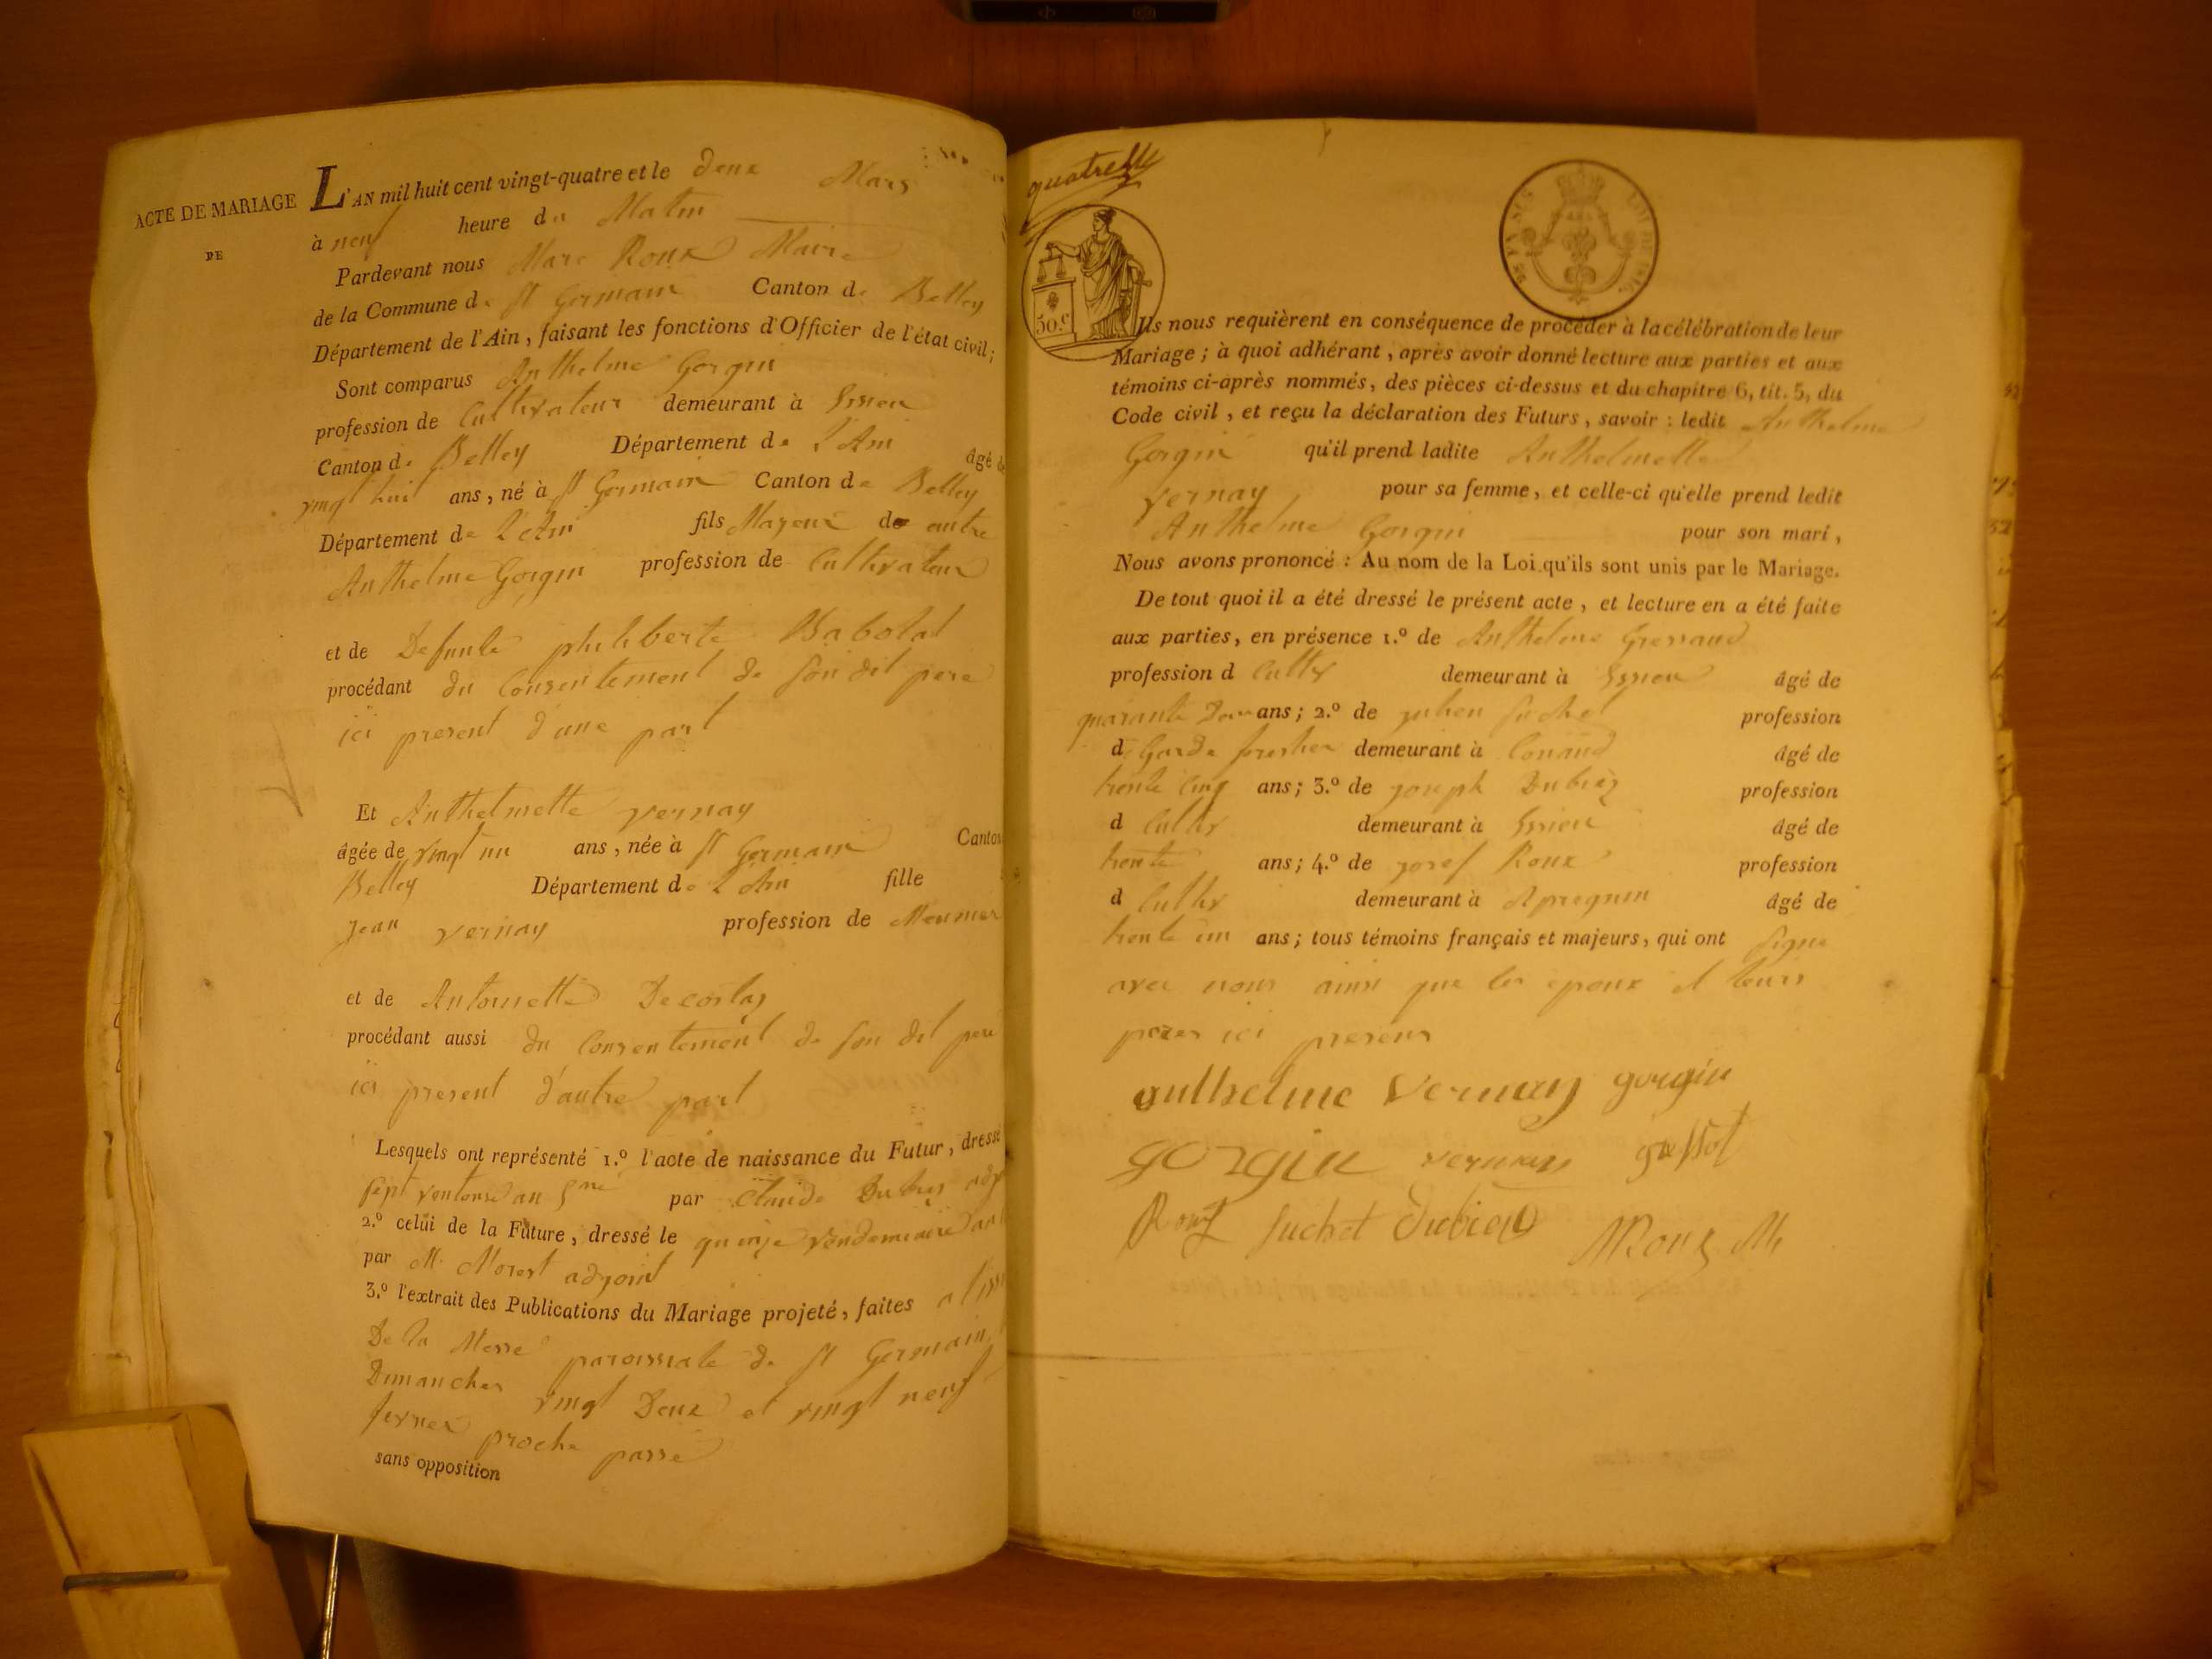 ACTE DE MARIAGE
DE
L'AN mil huit cent vingt-quatre et le deux Mars
à neuf heure du Matin
Pardevant nous Marc Roux Maire
de la Commune de St Germain Canton de Belley
Département de l'Ain, faisant les fonctions d'Officier de l'état civil;
Sont comparus Anthelme Gorgin
profession de Cultivateur demeurant à Essieu
Canton de Belley Département de L'Ain âgé de
vingt huit ans, né à St Germain Canton de Belley
Département de L'Ain fils Mageur de autre
Anthelme Gorgin profession de Cultivateur
et de Defunte philiberte Babolat
procédant du Consentement de son dit pere
ici present d'une part
Et Anthelmette vernay
âgée de vingt un ans, née à St Germain Canton
Belley Département de L'Ain fille
Jean vernay profession de Meunier
et de Antoinette Decorlay
procédant aussi du Consentement de son dit pere
ici present d'autre part
Lesquels ont représenté 1.º l'acte de naissance du Futur, dressé
sept ventose an par Claude Dubiez adj
2.º celui de la Future, dressé le quinze vendemiaire an
par M. Morest adjoint
3.º l'extrait des Publications du Mariage projeté, faites a l'iss
De la Messe paroissiale de St Germain
Dimanches vingt Deux et vingt neuf
fevrier proche passé
sans opposition
quatre
50.c
Ils nous requièrent en conséquence de procéder à la célébration de leur
Mariage; à quoi adhérant, après avoir donné lecture aux parties et aux
témoins ci-après nommés, des pièces ci-dessus et du chapitre 6, tit. 5, du
Code civil, et reçu la déclaration des Futurs, savoir: ledit Anthelme
Gorgin qu'il prend ladite Anthelmette
vernay pour sa femme, et celle-ci qu'elle prend ledit
Anthelme Gorgin pour son mari,
Nous avons prononcé: Au nom de la Loi qu'ils sont unis par le Mariage.
De tout quoi il a été dressé le présent acte, et lecture en a été faite
aux parties, en présence 1.º de Anthelme
profession d Cultiv demeurant à Essieu âgé de
quarante Deux ans; 2.º de julien Suchet profession
d Garde forestier demeurant à Conand âgé de
trente cinq ans; 3.º de joseph Dubiez profession
d Cultiv demeurant à Essieu âgé de
trente ans; 4.º de josef Roux profession
d Cultiv demeurant à Apregnin âgé de
trente un ans; tous témoins français et majeurs, qui ont signé
avec nous ainsi que les epoux et leurs
peres ici presens
anthelme vernay gorgin
gorgin vernay
Roux Suchet Dubiez MRoux M